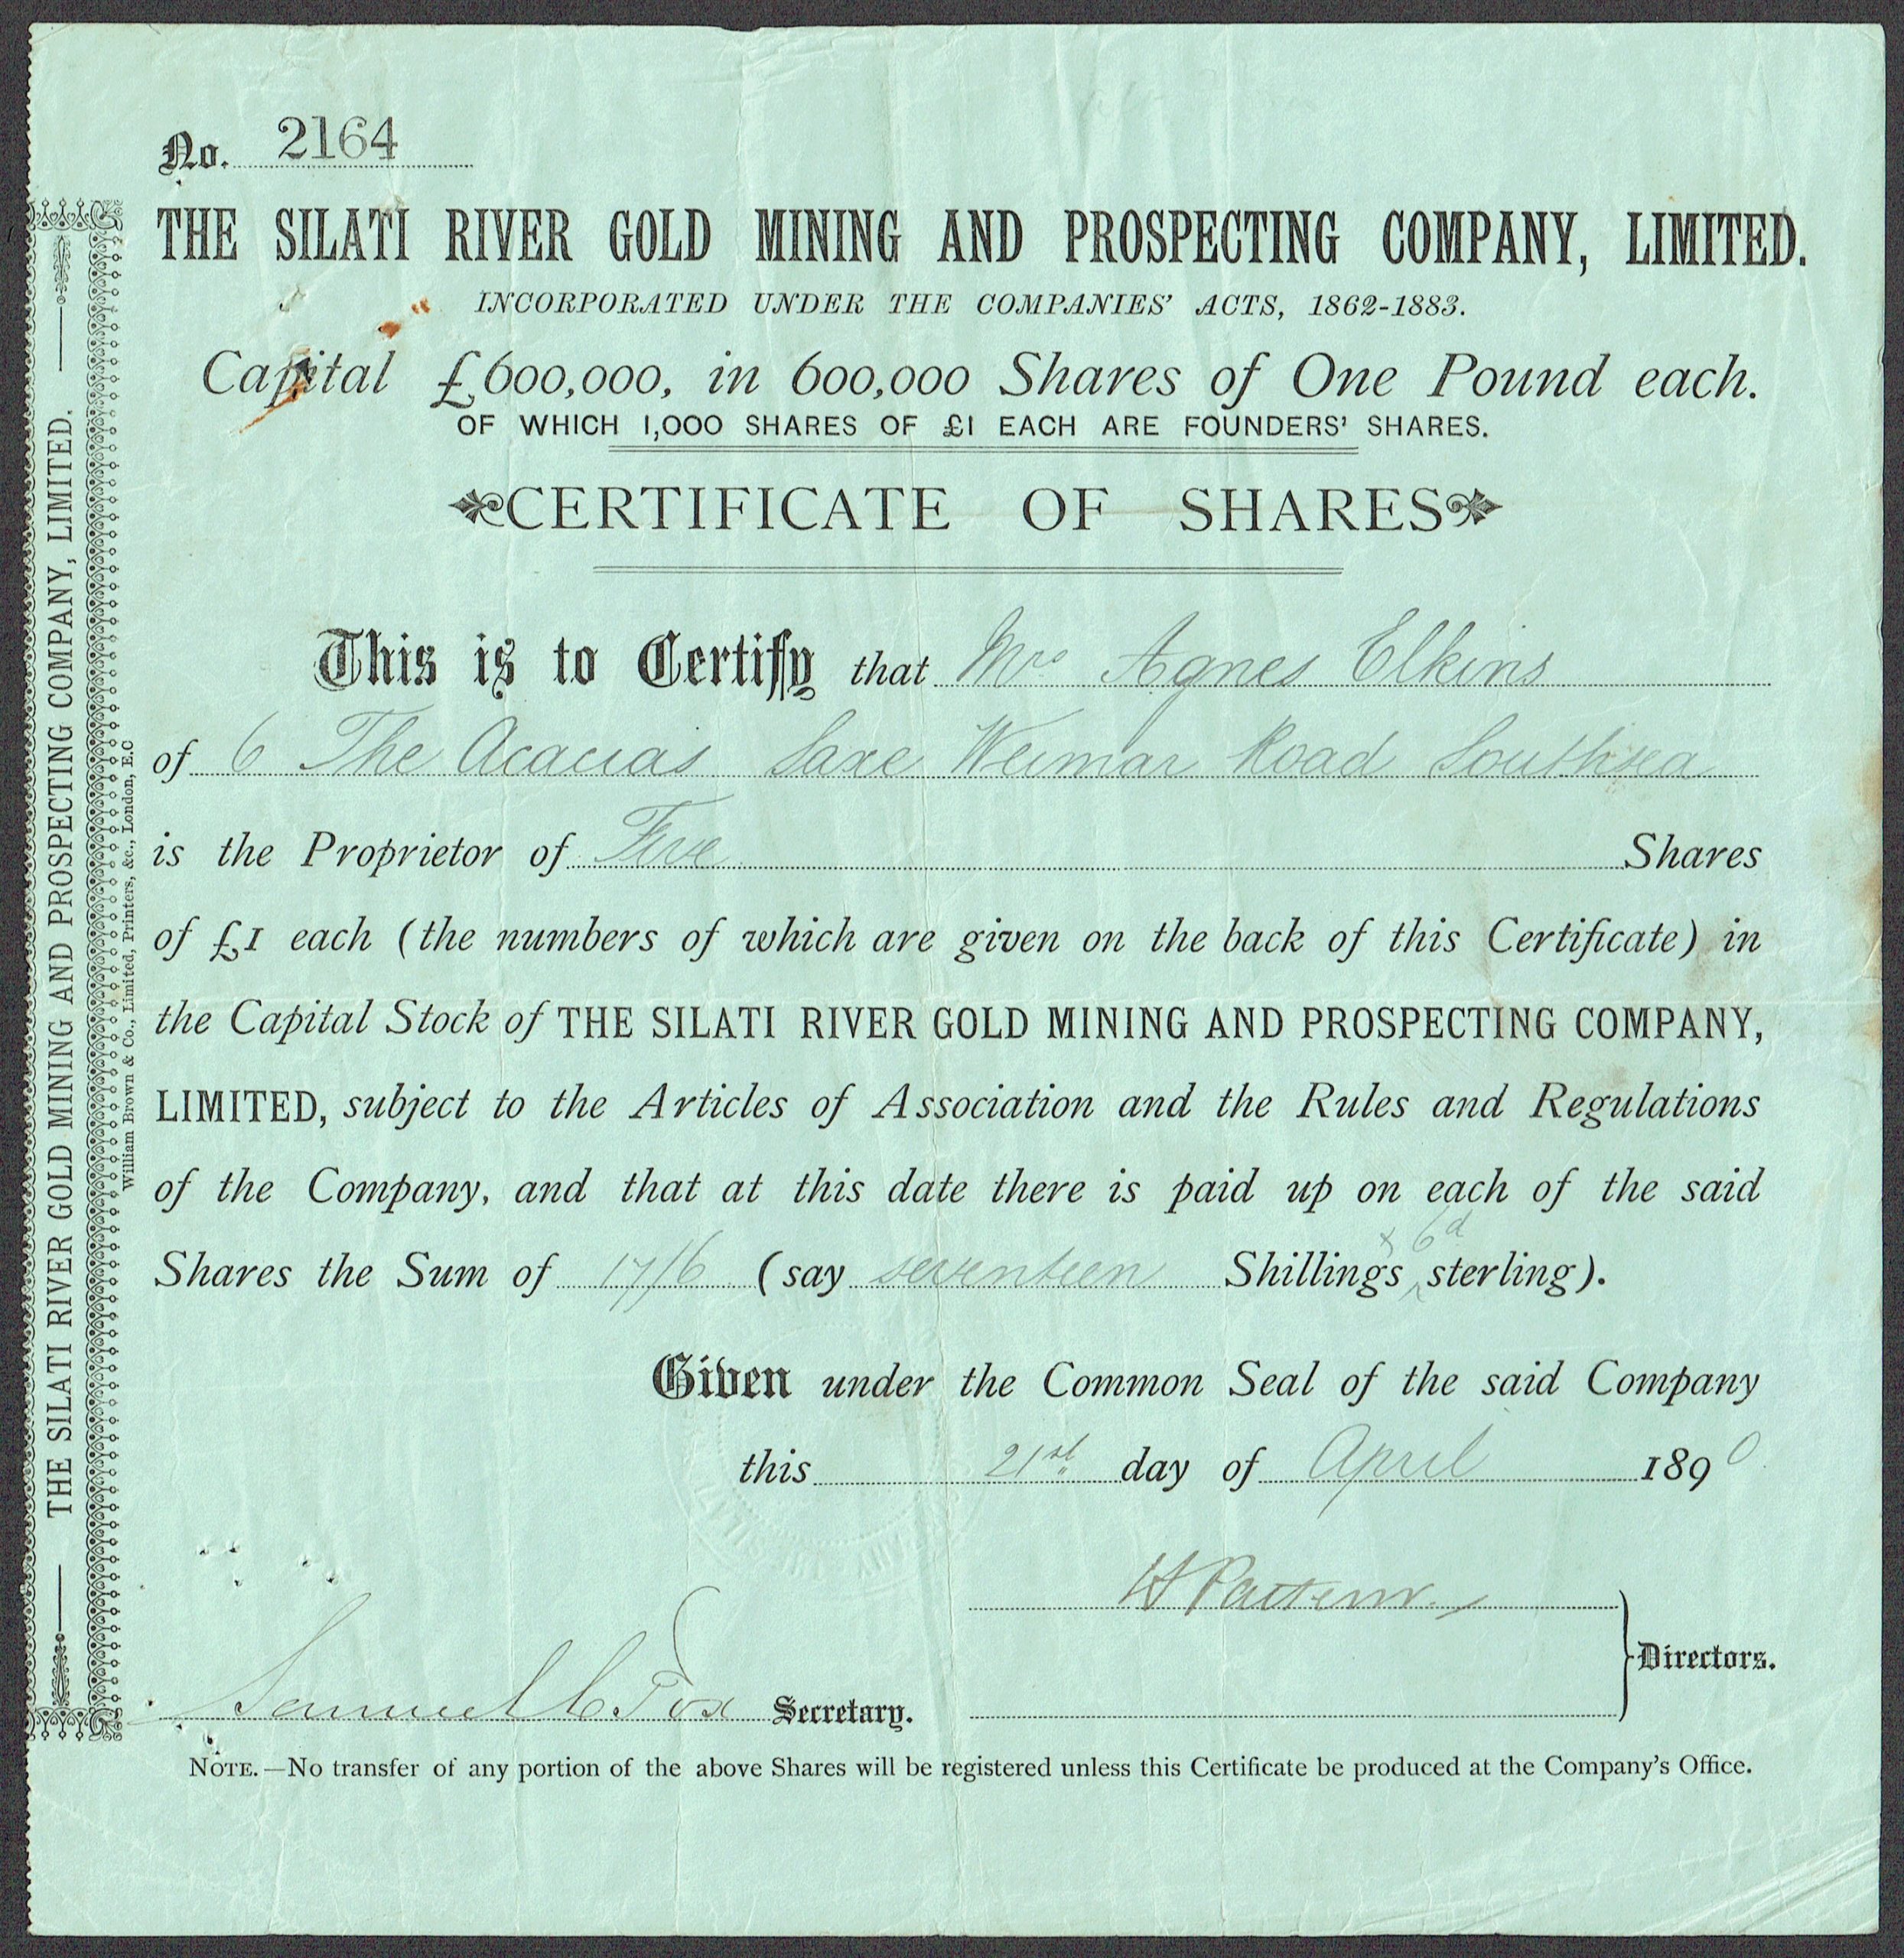 No. 2164
THE SILATI RIVER GOLD MINING AND PROSPECTING COMPANY, LIMITED.
INCORPORATED UNDER THE COMPANIES' ACTS, 1862-1883.
Capital £600,000, in 600,000 Shares of One Pound each.
OF WHICH 1,000 SHARES OF £1 EACH ARE FOUNDERS' SHARES.
CERTIFICATE OF SHARES
This is to Certify that Mrs Agnes Elkins
of 6 The Acacias Saxe Weimar Road Southsea
is the Proprietor of Five Shares
of £1 each (the numbers of which are given on the back of this Certificate) in
the Capital Stock of THE SILATI RIVER GOLD MINING AND PROSPECTING COMPANY,
LIMITED, subject to the Articles of Association and the Rules and Regulations
of the Company, and that at this date there is paid up on each of the said
& 6d
Shares the Sum of 17/6 (say seventeen Shillings sterling).
Given under the Common Seal of the said Company
this 21st day of April 1890
Directors.
Samuel C. Fox Secretary.
NOTE.—No transfer of any portion of the above Shares will be registered unless this Certificate be produced at the Company's Office.
THE SILATI RIVER GOLD MINING AND PROSPECTING COMPANY, LIMITED.
William Brown & Co., Limited, Printers, &c., London, E.C